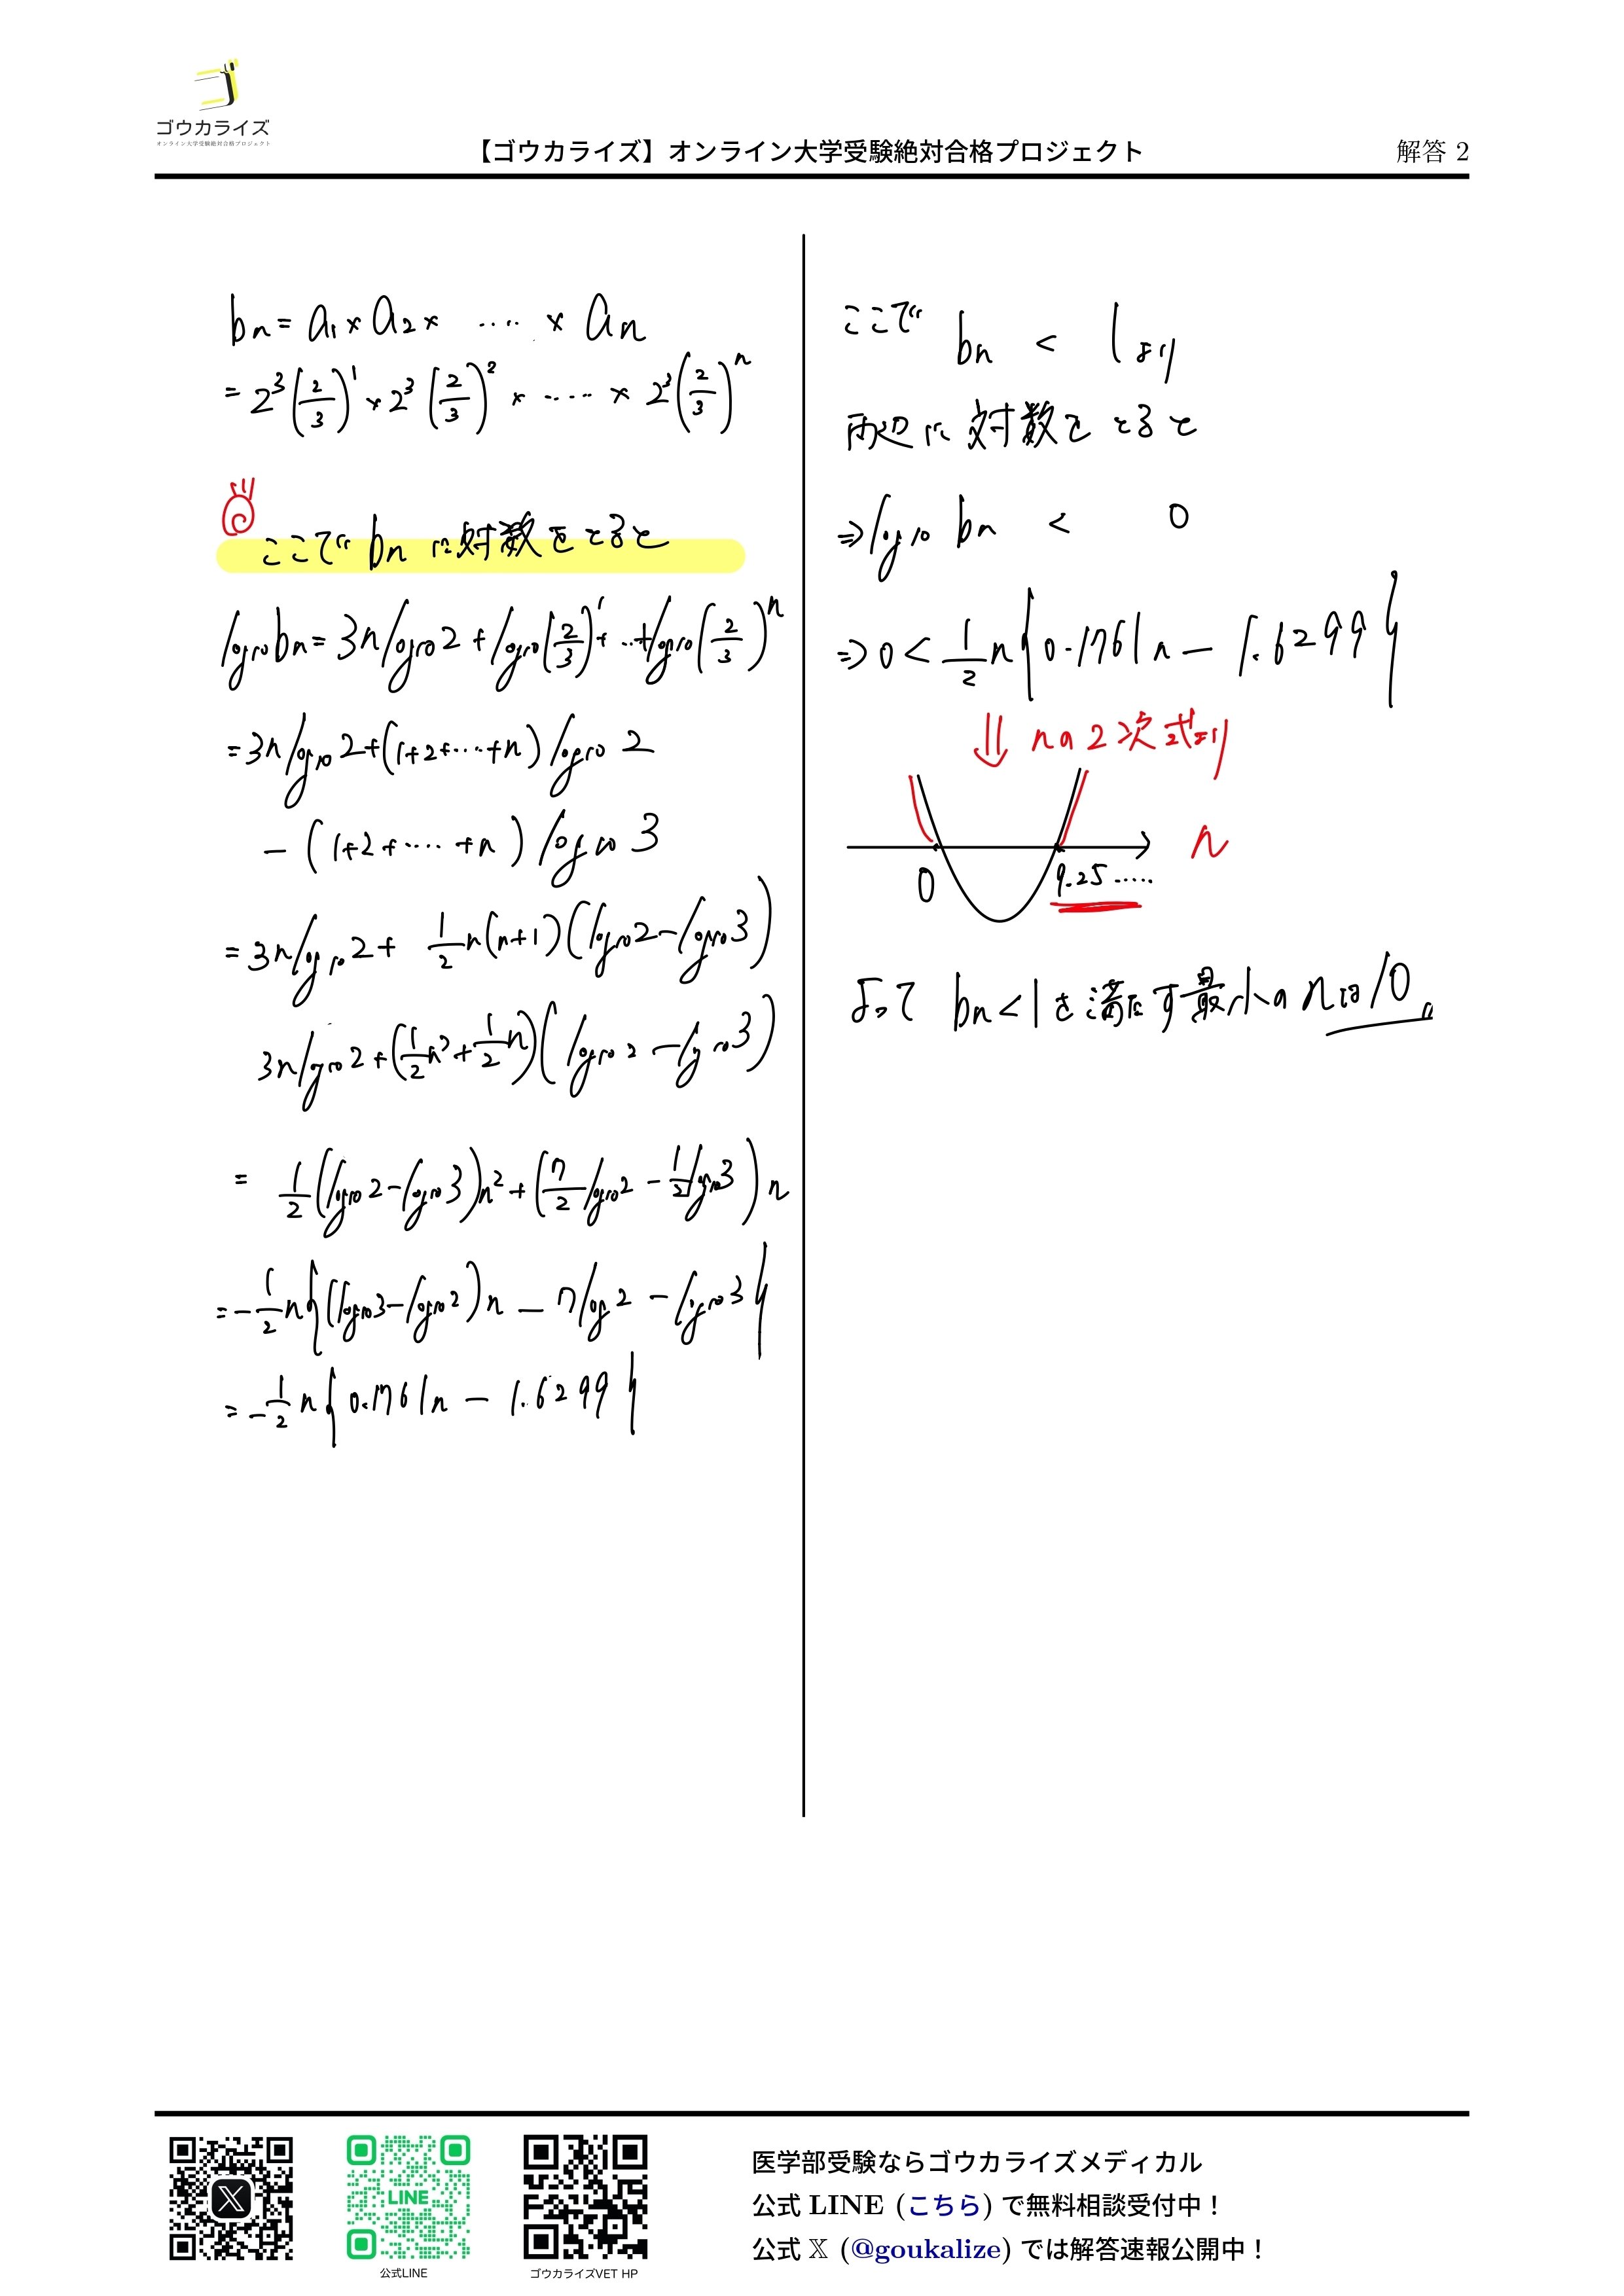 ゴウカライズ
オンライン大学受験絶対合格プロジェクト
【ゴウカライズ】オンライン大学受験絶対合格プロジェクト
解答 2
bn = a₁ × a₂ × ‥‥ × an
= 2³(2/3)¹ × 2³(2/3)² × ‥‥ × 2³(2/3)ⁿ
ここで bn に対数をとると
log₁₀bn = 3nlog₁₀2 + log₁₀(2/3)¹ + ‥ + log₁₀(2/3)ⁿ
= 3nlog₁₀2 + (1+2+‥‥+n)log₁₀2
− (1+2+‥‥+n)log₁₀3
= 3nlog₁₀2 + 1/2 n(n+1)(log₁₀2 − log₁₀3)
3nlog₁₀2 + (1/2 n² + 1/2 n)(log₁₀2 − log₁₀3)
= 1/2 (log₁₀2 − log₁₀3)n² + (7/2 log₁₀2 − 1/2 log₁₀3)n
= −1/2 n{(log₁₀3 − log₁₀2)n − 7log2 − log₁₀3}
= −1/2 n{0.1761n − 1.6299}
ここで bn < 1 より
両辺に対数をとると
⇒ log₁₀ bn < 0
⇒ 0 < 1/2 n{0.1761n − 1.6299}
⇓ nの2次式より
n
0 9.25‥‥
よって bn<1を満たす最小のnは10〃
LINE
公式LINE
ゴウカライズVET HP
医学部受験ならゴウカライズメディカル
公式 LINE (こちら) で無料相談受付中！
公式 𝕏 (@goukalize) では解答速報公開中！